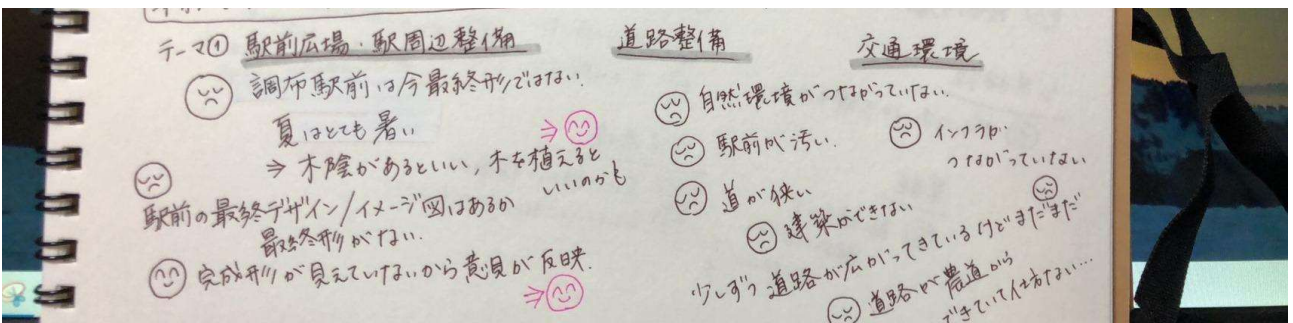 テーマ① 駅前広場・駅周辺整備
調布駅前は今最終形ではない.
夏はとても暑い
⇒ 木陰があるといい, 木を植えると
いいのかも
駅前の最終デザイン/イメージ図はあるか
最終形がない.
完成形が見えていないから意見が反映.
⇒
道路整備
交通環境
自然環境がつながっていない.
駅前が汚い.
インフラが.
つながっていない
道が狭い
建築ができない
少しずつ道路が広がってきているけどまだまだ
道路が農道から
できていて仕方ない…